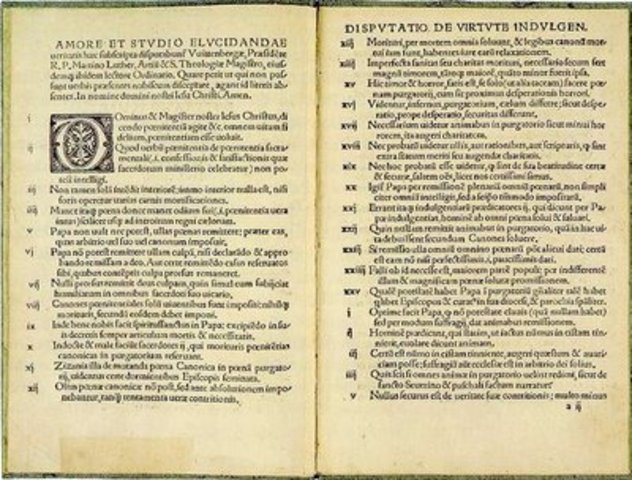 AMORE ET STVDIO ELVCIDANDAE
ueritatis hæc subscripta disputabunť Vuittenbergæ, Præsidẽte
R. P. Martino Luther, Artiũ & S. Theologiæ Magistro, eius
demq; ibidem lectore Ordinario. Quare petit ut qui non pos
sunt uerbis præsentes nobiscum disceptare, agant id literis ab
sentes. In nomine domini nostri Iesu Christi. Amen.
i DOminus & Magister noster Iesus Christus, di
cendo pœnitentiã agite &c, omnem uitam fi
delium, pœnitentiam esse uoluit.
ij Quod uerbũ pœnitentia de pœnitentia sacra
mentali(.i. confessionis & satisfactionis quæ
sacerdotum ministerio celebratur) non po
test intelligi.
iij Non tamen solã intẽdit interiorẽ; immo interior nulla est, nisi
foris operetur uarias carnis mortificationes.
iiij Manet itaq; pœna donec manet odium sui(.i. pœnitentia uera
intus) scilicet usq; ad introitum regni cælorum.
v Papa non uult nec potest, ullas pœnas remittere; præter eas,
quas arbitrio uel suo uel canonum imposuit.
vj Papa nõ potest remittere ullam culpã, nisi declarãdo & appro
bando remissam a deo. Aut certe remittẽdo casus reseruatos
sibi, quibus contẽptis culpa prorsus remaneret.
vij Nulli prorsus remittit deus culpam, quin simul eum subijciat
humiliatum in omnibus sacerdoti suo uicario,
viij Canones pœnitentiales solũ uiuentibus sunt impositi; nihilq;
morituris, secundũ eosdem debet imponi.
ix Inde bene nobis facit spiritussanctus in Papa; excipiẽdo in su
is decretis semper articulum mortis & necessitatis.
x Indocte & male faciũt sacerdotes ij, qui morituris pœnitẽtias
canonicas in purgatorium reseruant.
xj Zizania illa de mutanda pœna Canonica in pœnã purgato
rij, uidentur certe dormientibus Episcopis seminata.
xij Olim pœnæ canonicæ nõ post, sed ante absolutionem impo
nebantur, tanq̃ tentamenta ueræ contritionis,
DISPVTATIO. DE VIRTVTE INDVLGEN.
xiij Morituri, per mortem omnia soluunt, & legibus canonũ mor
tui iam sunt, habentes iure earũ relaxationem.
xiiij Imperfecta sanitas seu charitas morituri, necessario secum fert
magnũ timorem, tãtoq; maiorẽ, quãto minor fuerit ipsa,
xv Hic timor & horror, satis est, se solo (ut alia taceam) facere pœ
nam purgatorij, cum sit proximus desperationis horrori.
xvj Videntur, infernus, purgatorium, cælum differre; sicut despe
ratio, prope desperatio, securitas differunt,
xvij Necessarium uidetur animabus in purgatorio sicut minui hor
rorem, ita augeri charitatem.
xviij Nec probatũ uidetur ullis, aut rationibus, aut scripturis, q̃ sint
extra statum meriti seu augendæ charitatis.
xix Nec hoc probatũ esse uidetur, q̃ sint de sua beatitudine certæ
& securæ, saltem oẽs, licet nos certissimi simus.
xx Igiť Papa per remissionẽ plenariã omniũ pœnarũ, non simpli
citer omniũ intelligit, sed a seipso tãtummodo impositarũ,
xxj Errant itaq; indulgentiarũ prædicatores ij, qui dicunt per Pa
pæ indulgentias, hominẽ ab omni pœna solui & saluari.
xxij Quin nullam remittit animabus in purgatorio, quã in hac ui
ta debuissent secundum Canones soluere,
xxiij Si remissio ulla omniũ omnino pœnarũ põt alicui dari; certũ
est eam nõ nisi perfectissimis .i. paucissimis dari.
xxiiij Falli ob id necesse est, maiorem partẽ populi; per indifferentẽ
illam & magnificam pœnæ solutæ promissionem.
xxv Qualẽ potestatẽ habet Papa ĩ purgatoriũ gñaliter talẽ habet
quilibet Episcopus & curať in sua diœcesi, & parochia spãliter.
i Optime facit Papa, q̃ nõ potestate clauis (quã nullam habet)
sed per modum suffragij, dat animabus remissionem.
ij Hominẽ prædicant, qui statim, ut iactus nũmus in cistam tin
nierit, euolare dicunt animam.
iij Certũ est nũmo in cistam tinniente, augeri quæstum & auari
ciam posse; suffragiũ aũt ecclesiæ est in arbitrio dei solius,
iiij Quis scit si omnes animæ in purgatorio uelint redimi, sicut de
sancto Seuerino & paschali factum narratur.
v Nullus securus est de ueritate suæ contritionis; multo minus
a ij